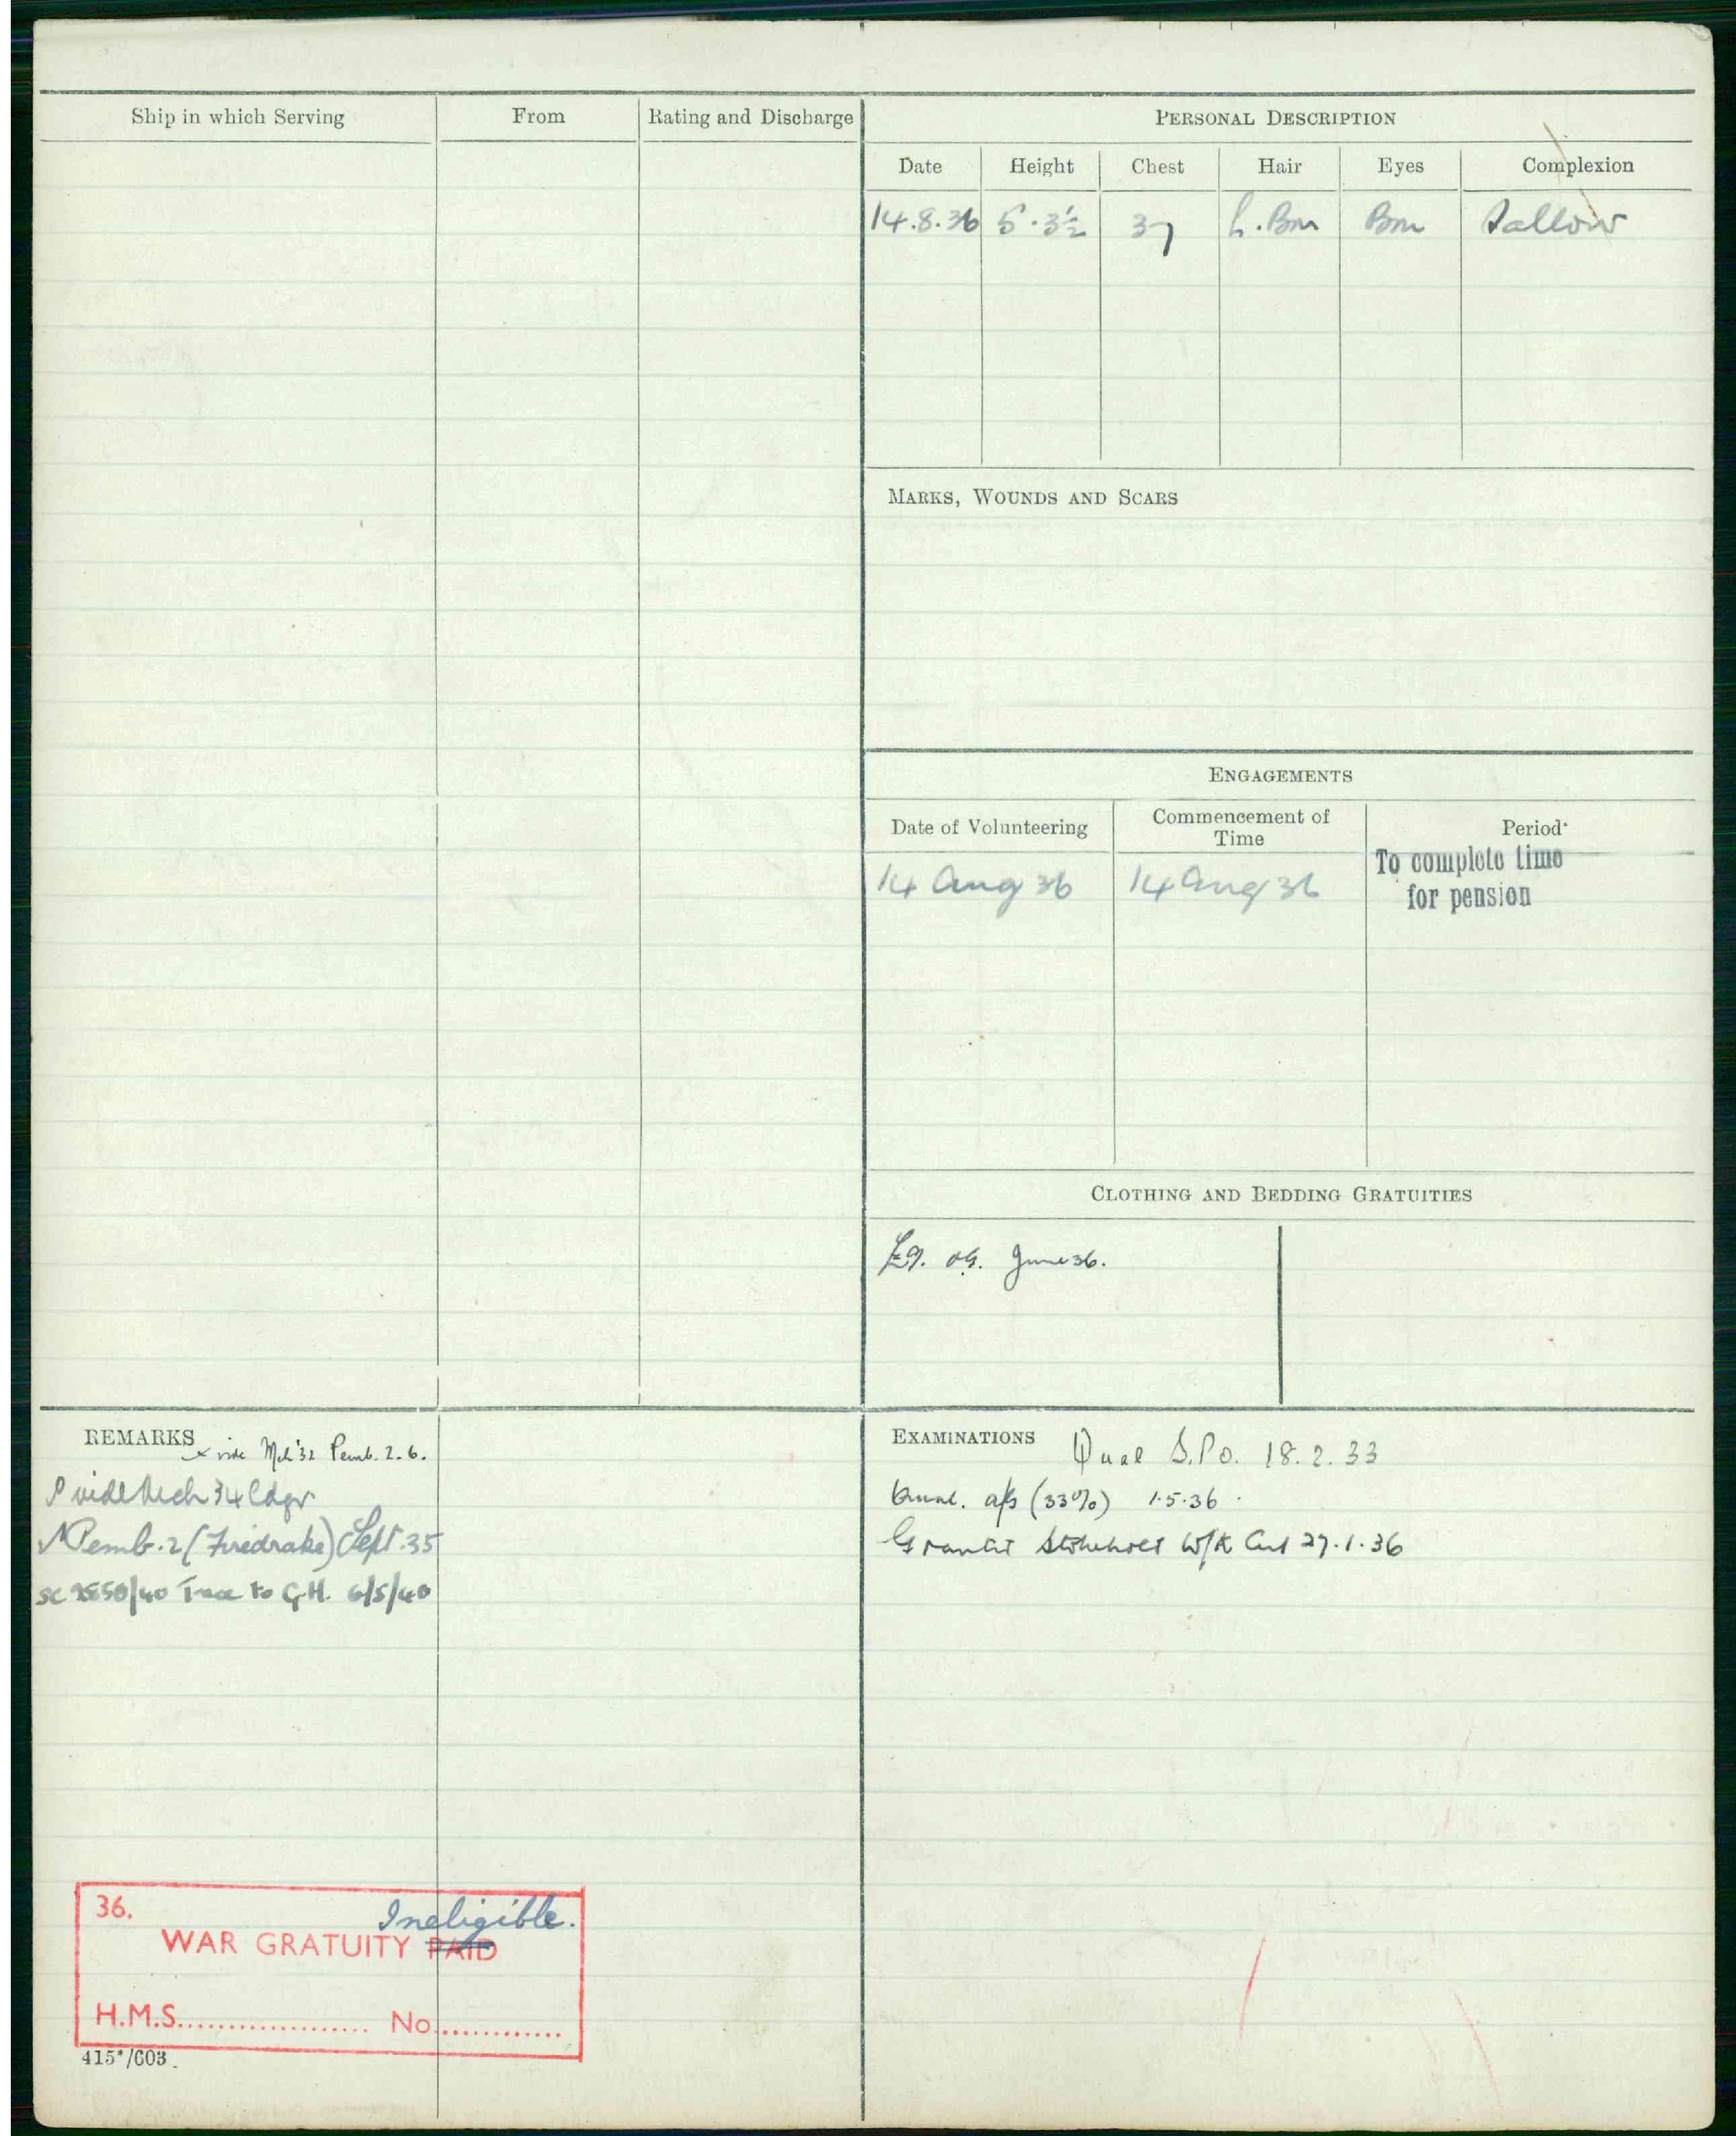 Ship in which Serving
From
Rating and Discharge
PERSONAL DESCRIPTION
Date
Height
Chest
Hair
Eyes
Complexion
14.8.36
5.3½
37
L.Brn
Brn
Sallow
MARKS, WOUNDS AND SCARS
ENGAGEMENTS
Date of Volunteering
Commencement of
Time
Period
14 Aug 36
14 Aug 36
To complete time
for pension
CLOTHING AND BEDDING GRATUITIES
£9. June 36.
REMARKS
x vide Mch '32 Pemb. 2. 6.
vide Mch 34 Ldgr
N Pemb. 2 (Firedrake) Sept. 35
SC /40 to G.H. 6/5/40
EXAMINATIONS
Qual S.P.O. 18.2.33
(33%) 1.5.36
Granted W/K Cert 27.1.36
36.
Ineligible.
WAR GRATUITY PAID
H.M.S. No.
415*/603